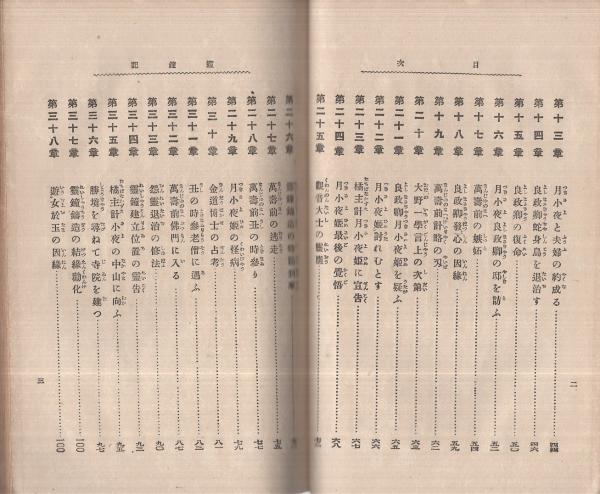 目次
第十三章 月小夜と夫婦の約成る 四四
第十四章 良政卿蛇身鳥を退治す 四六
第十五章 良政卿の復命 五〇
第十六章 月小夜良政卿の邸を訪ふ 五二
第十七章 萬壽前の嫉妬 五四
第十八章 良政卿發心の因縁 五九
第十九章 萬壽前計略の刄 六二
第二十章 大野一學言上の次第 六三
第二十一章 良政卿月小夜姫を疑ふ 六五
第二十二章 月小夜姫討れむとす 六六
第二十三章 橘主計月小夜姫に宣告 六七
第二十四章 月小夜姫最後の覺悟 六八
第二十五章 觀音大士の靈應
二
鐘鐘記
第二十六章
第二十七章 萬壽前の逃走 七五
第二十八章 萬壽前丑の時參り 七七
第二十九章 月小夜姫の怪病 七九
第三十章 金道博士の占考 八一
第三十一章 丑の時參老僧に遇ふ 八二
第三十二章 萬壽前佛門に入る 八七
第三十三章 怨靈退治の修法 九一
第三十四章 靈鐘建立位置の靈告 九二
第三十五章 橘主計小夜の中山に向ふ 九五
第三十六章 勝境を尋ねて寺院を建つ 九七
第三十七章 靈鐘鑄造の結縁勸化 一〇〇
第三十八章 遊女於玉の因縁 一〇〇
三